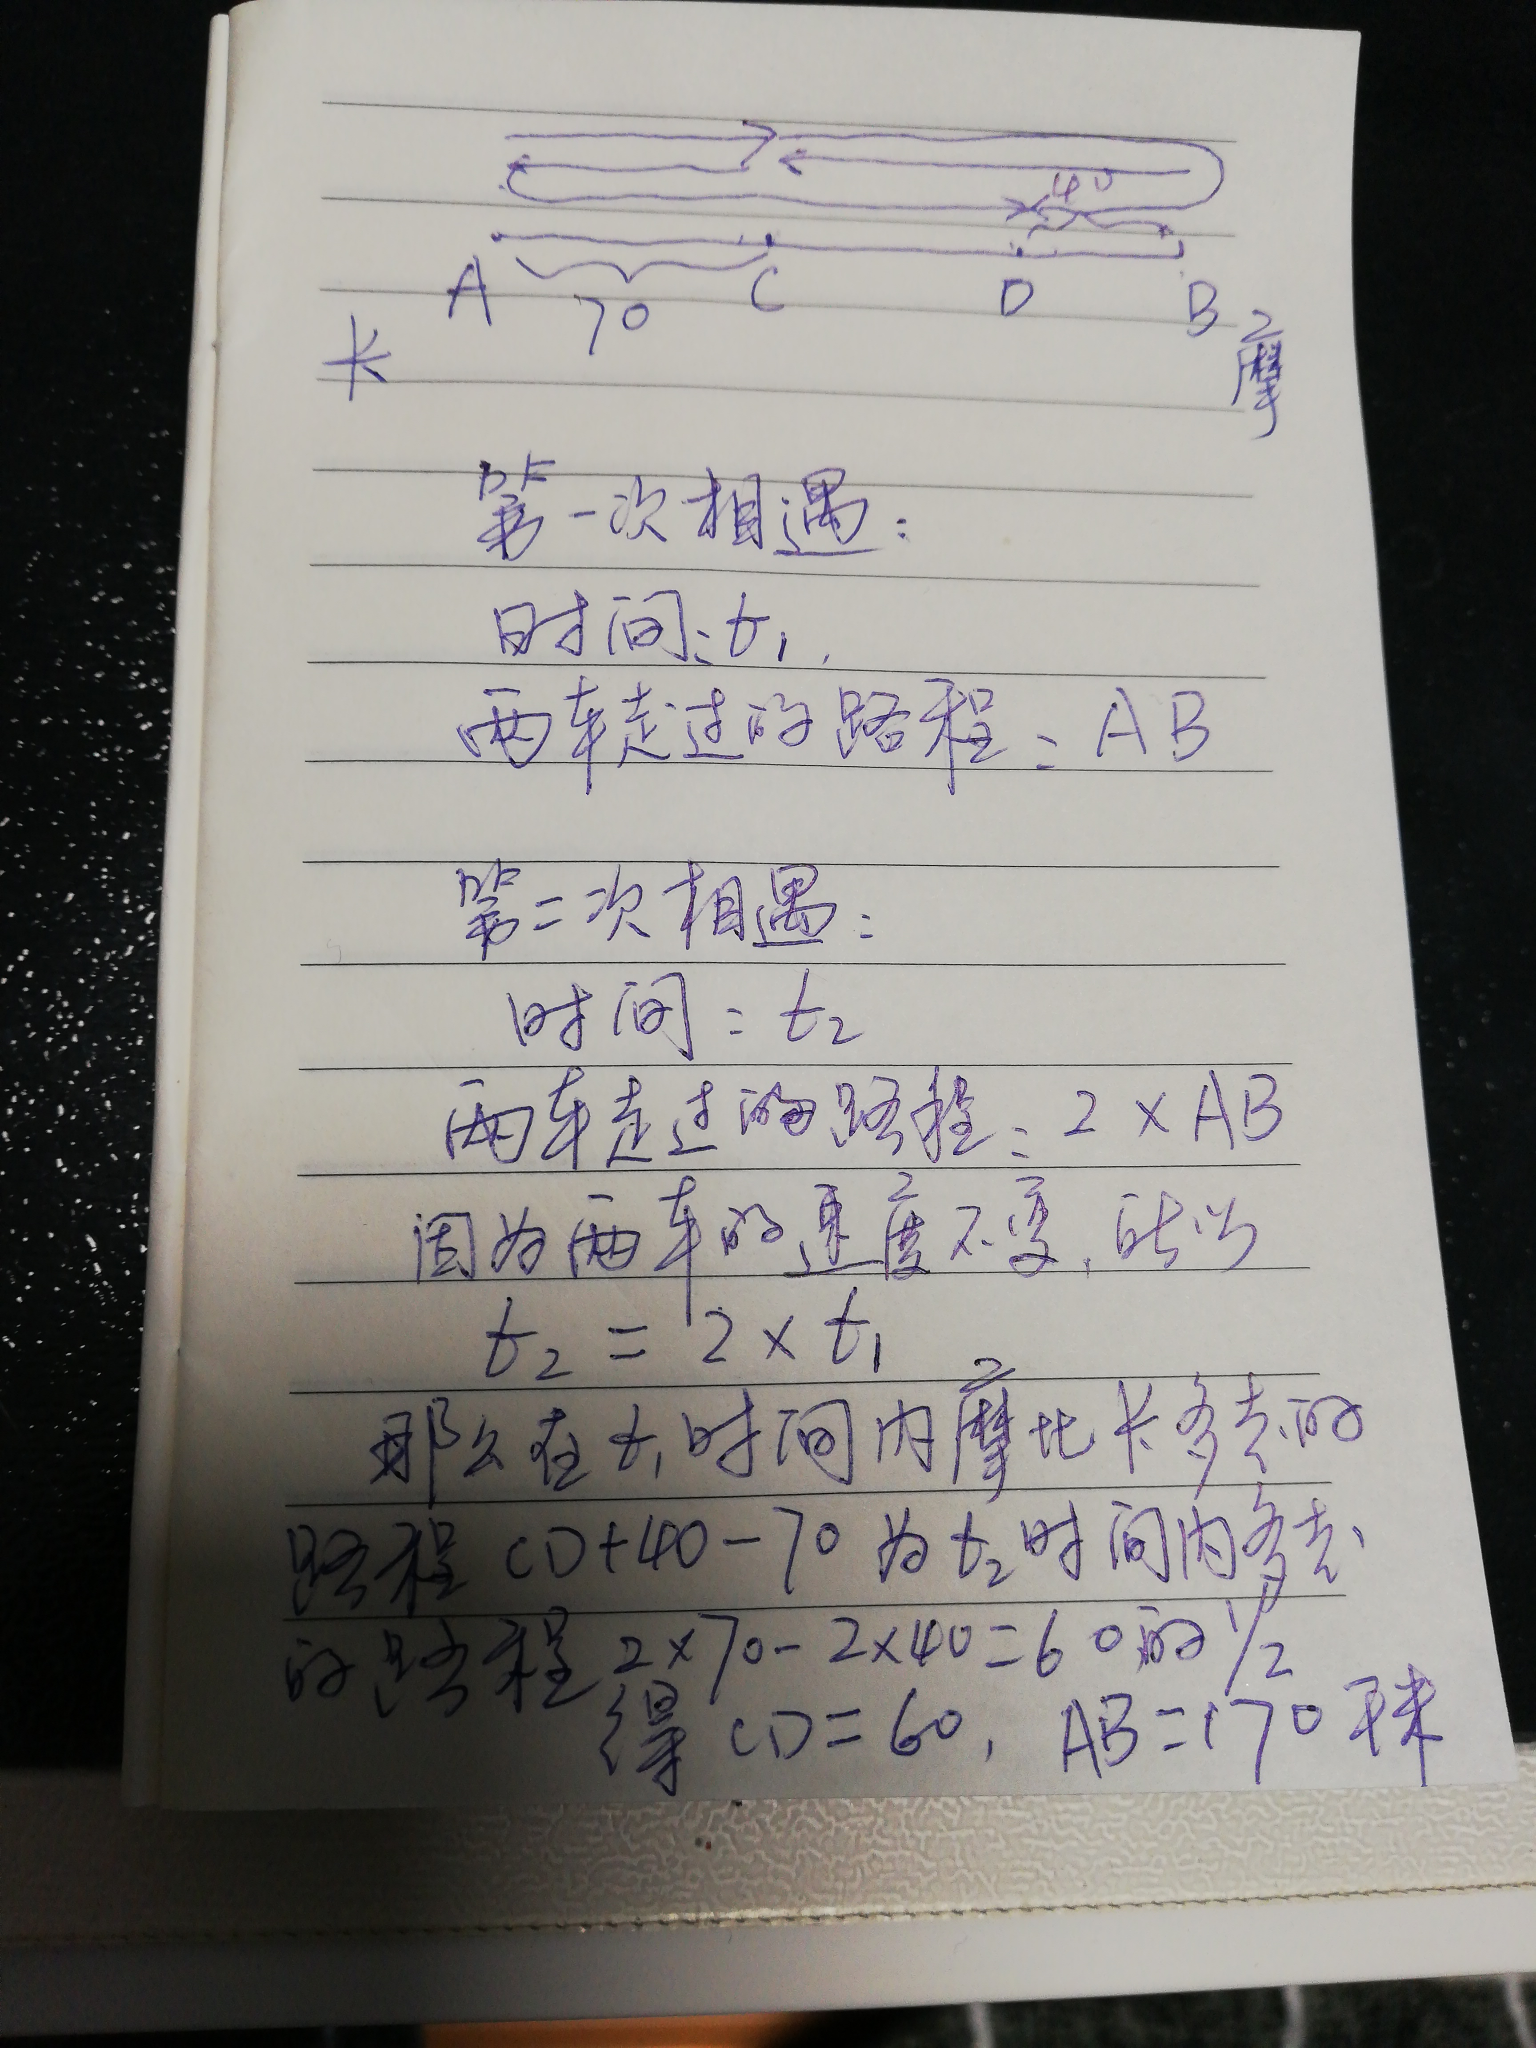 40
A 70 C D B
卡 摩
第一次相遇:
时间:t₁.
两车走过的路程:AB
第二次相遇:
时间:t₂
两车走过的路程:2×AB
因为两车的速度不变,所以
t₂=2×t₁
那么在t₁时间内摩比卡多走的
路程CD+40-70为t₂时间内多走
的路程2×70-2×40=60的1/2
得CD=60, AB=170千米